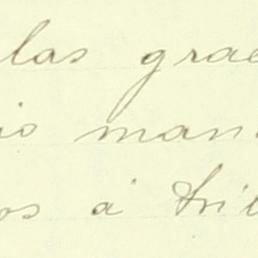 las grae
io man
os á tri